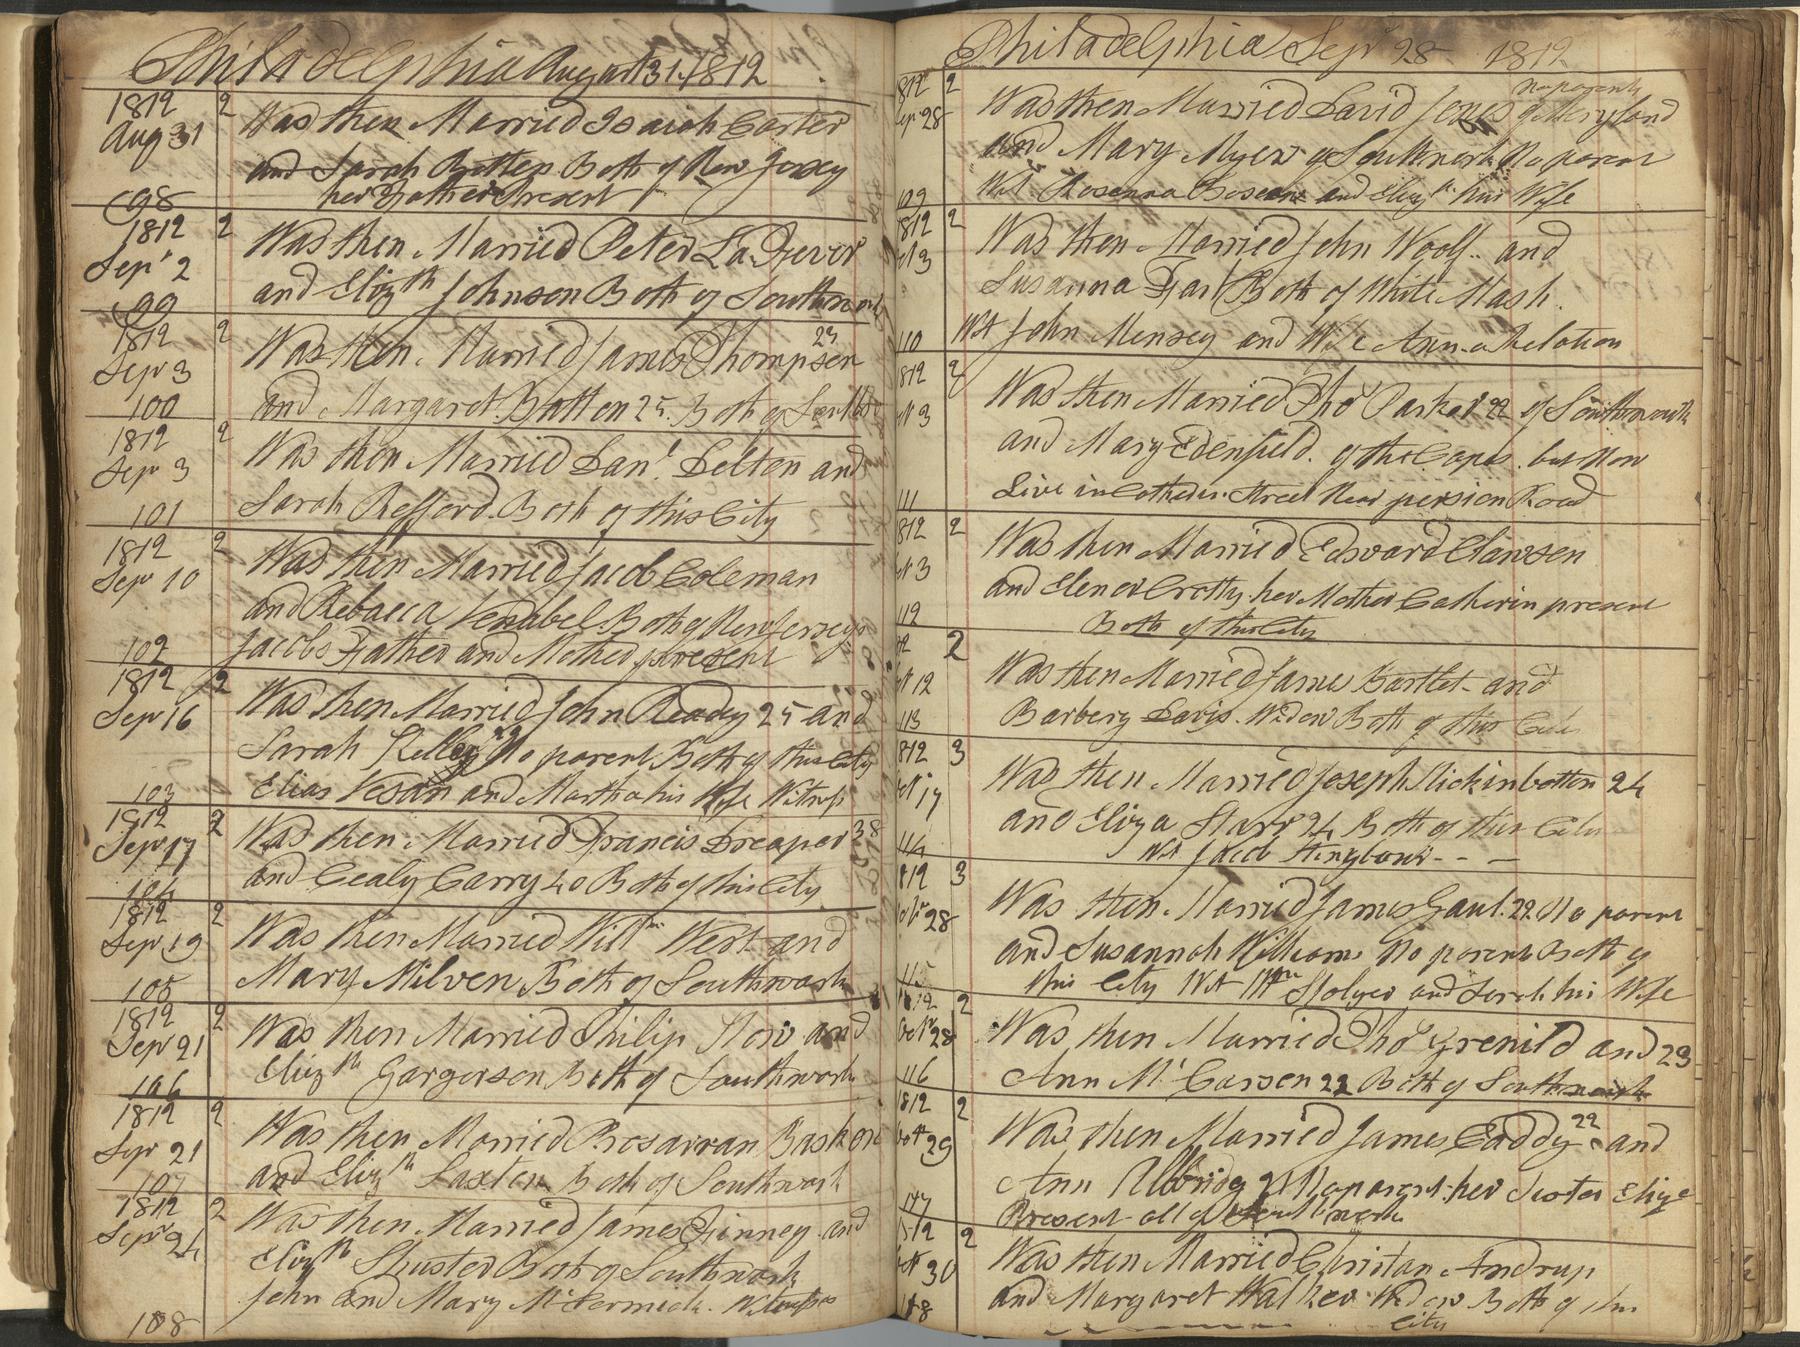 Philadelphia August 31. 1812
1812 2 Was then Married Isaiah Carter
Aug 31 and Sarah Botten Both of New Jersey
98 her Father Present
1812 2 Was then Married Peter La Fever
Sepr 2 and Elizth Johnson Both of Southwark
99
1812 2 Was then Married James Thompson 23
Sepr 3
100 and Margaret Batton 25. Both of
1812 2 Was then Married Danl. Delten and
Sepr 3
101 Sarah Refford Both of this City
1812 2 Was then Married Jacob Coleman
Sepr 10 and Rebacca Venabel Both of New Jersey
102 Jacobs Father and Mother present
1812 2 Was then Married John Ready 25 and
Sepr 16 Sarah Kelley No parent Both of this City
103 Elias and Martha his Wife Witness
1812 2 Was then Married Francis Dreaper 38
Sepr 17
104 and Cealy Carry 40 Both of this City
1812 2 Was then Married Willm West and
Sepr 19
105 Mary Milven Both of Southwark
1812 2 Was then Married Philip and
Sepr 21
106 Elizth Gargerson Both of Southwark
1812 2 Was then Married
Sepr 21
107 and Elizth Saxten Both of Southwark
1812 2 Was then Married James Finney and
Sepr 24 Elizth Shuster Both of Southwark
108 John and Mary Witnesses
Philadelphia Sepr 28 1812
No parents
1812 2 Was then Married David Jones of Maryland
Sepr 28 and Mary Myers of Southwark No parent
109 Wit Rosanna and Elizth his Wife
1812 2 Was then Married John Woolf.. and
Oct 3 Susanna Both of White Mash.
110 Wit John Mensey and Wife Ann a Relation
1812 2 Was then Married Thos Parker 22 of Southwark
Oct 3 and Mary Edenfield. of the Capes. but Now
111 Live in Street Near Road
1812 2 Was then Married Edward Clawsen
Oct 3 and Elenor Crotty her Mother Catherin present
112 Both of this City
1812 2 Was then Married James Bartlet and
Oct 12
113 Barbery Davis. Widow Both of this City
1812 3 Was then Married Joseph Hickinbotten 24
Oct 17 and Eliza Starr 24 Both of this City
114 Wit Jacob - - -
1812 3 Was then Married James Gaul. 22 No parent
28 and Susannah Williams No parent Both of
115 this City Wit Wm and Sarah his Wife
1812 2 Was then Married Thos and 23
Octr 28
116 Ann Mc Carsen 22 Both of Southwark
1812 2 Was then Married James Eaddy 22 and
Oct 29 Ann No parent her Sister Eliza
117 Present all of Southwark
1812 2 Was then Married Christan Andrup
Oct 30 and Margaret Walker Widow Both of this
118 City